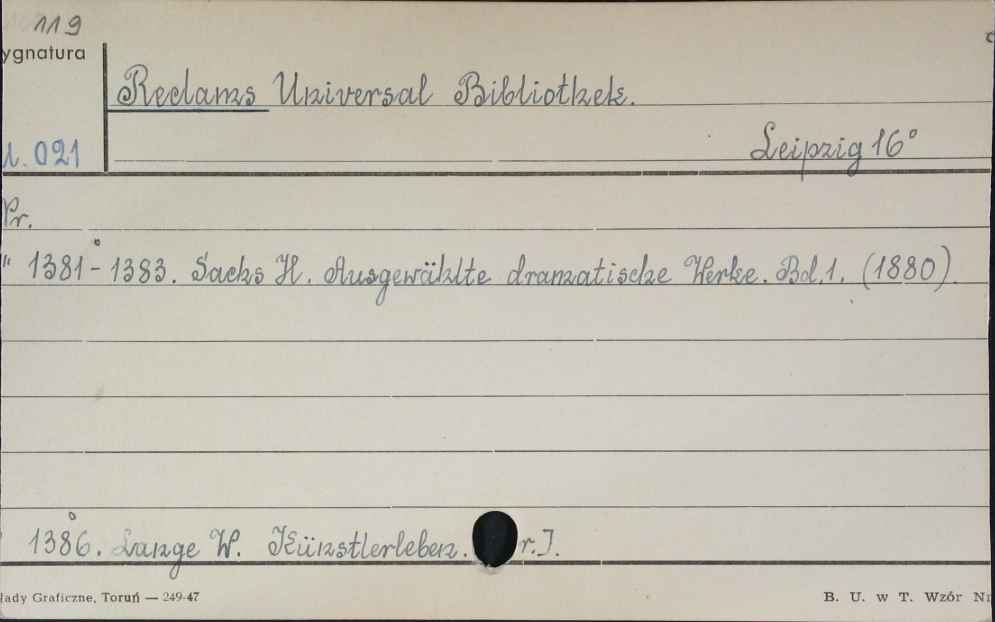 119
ygnatura
Reclams Universal Bibliothek.
1. 021
Leipzig 16°
Pr.
" 1381 - 1383. Sachs H. Ausgewählte dramatische Werke. Bd.1. (1880).
1386. Lange W. Künstlerleben. r.I.
łady Graficzne, Toruń — 249-47
B. U. w T. Wzór Nr